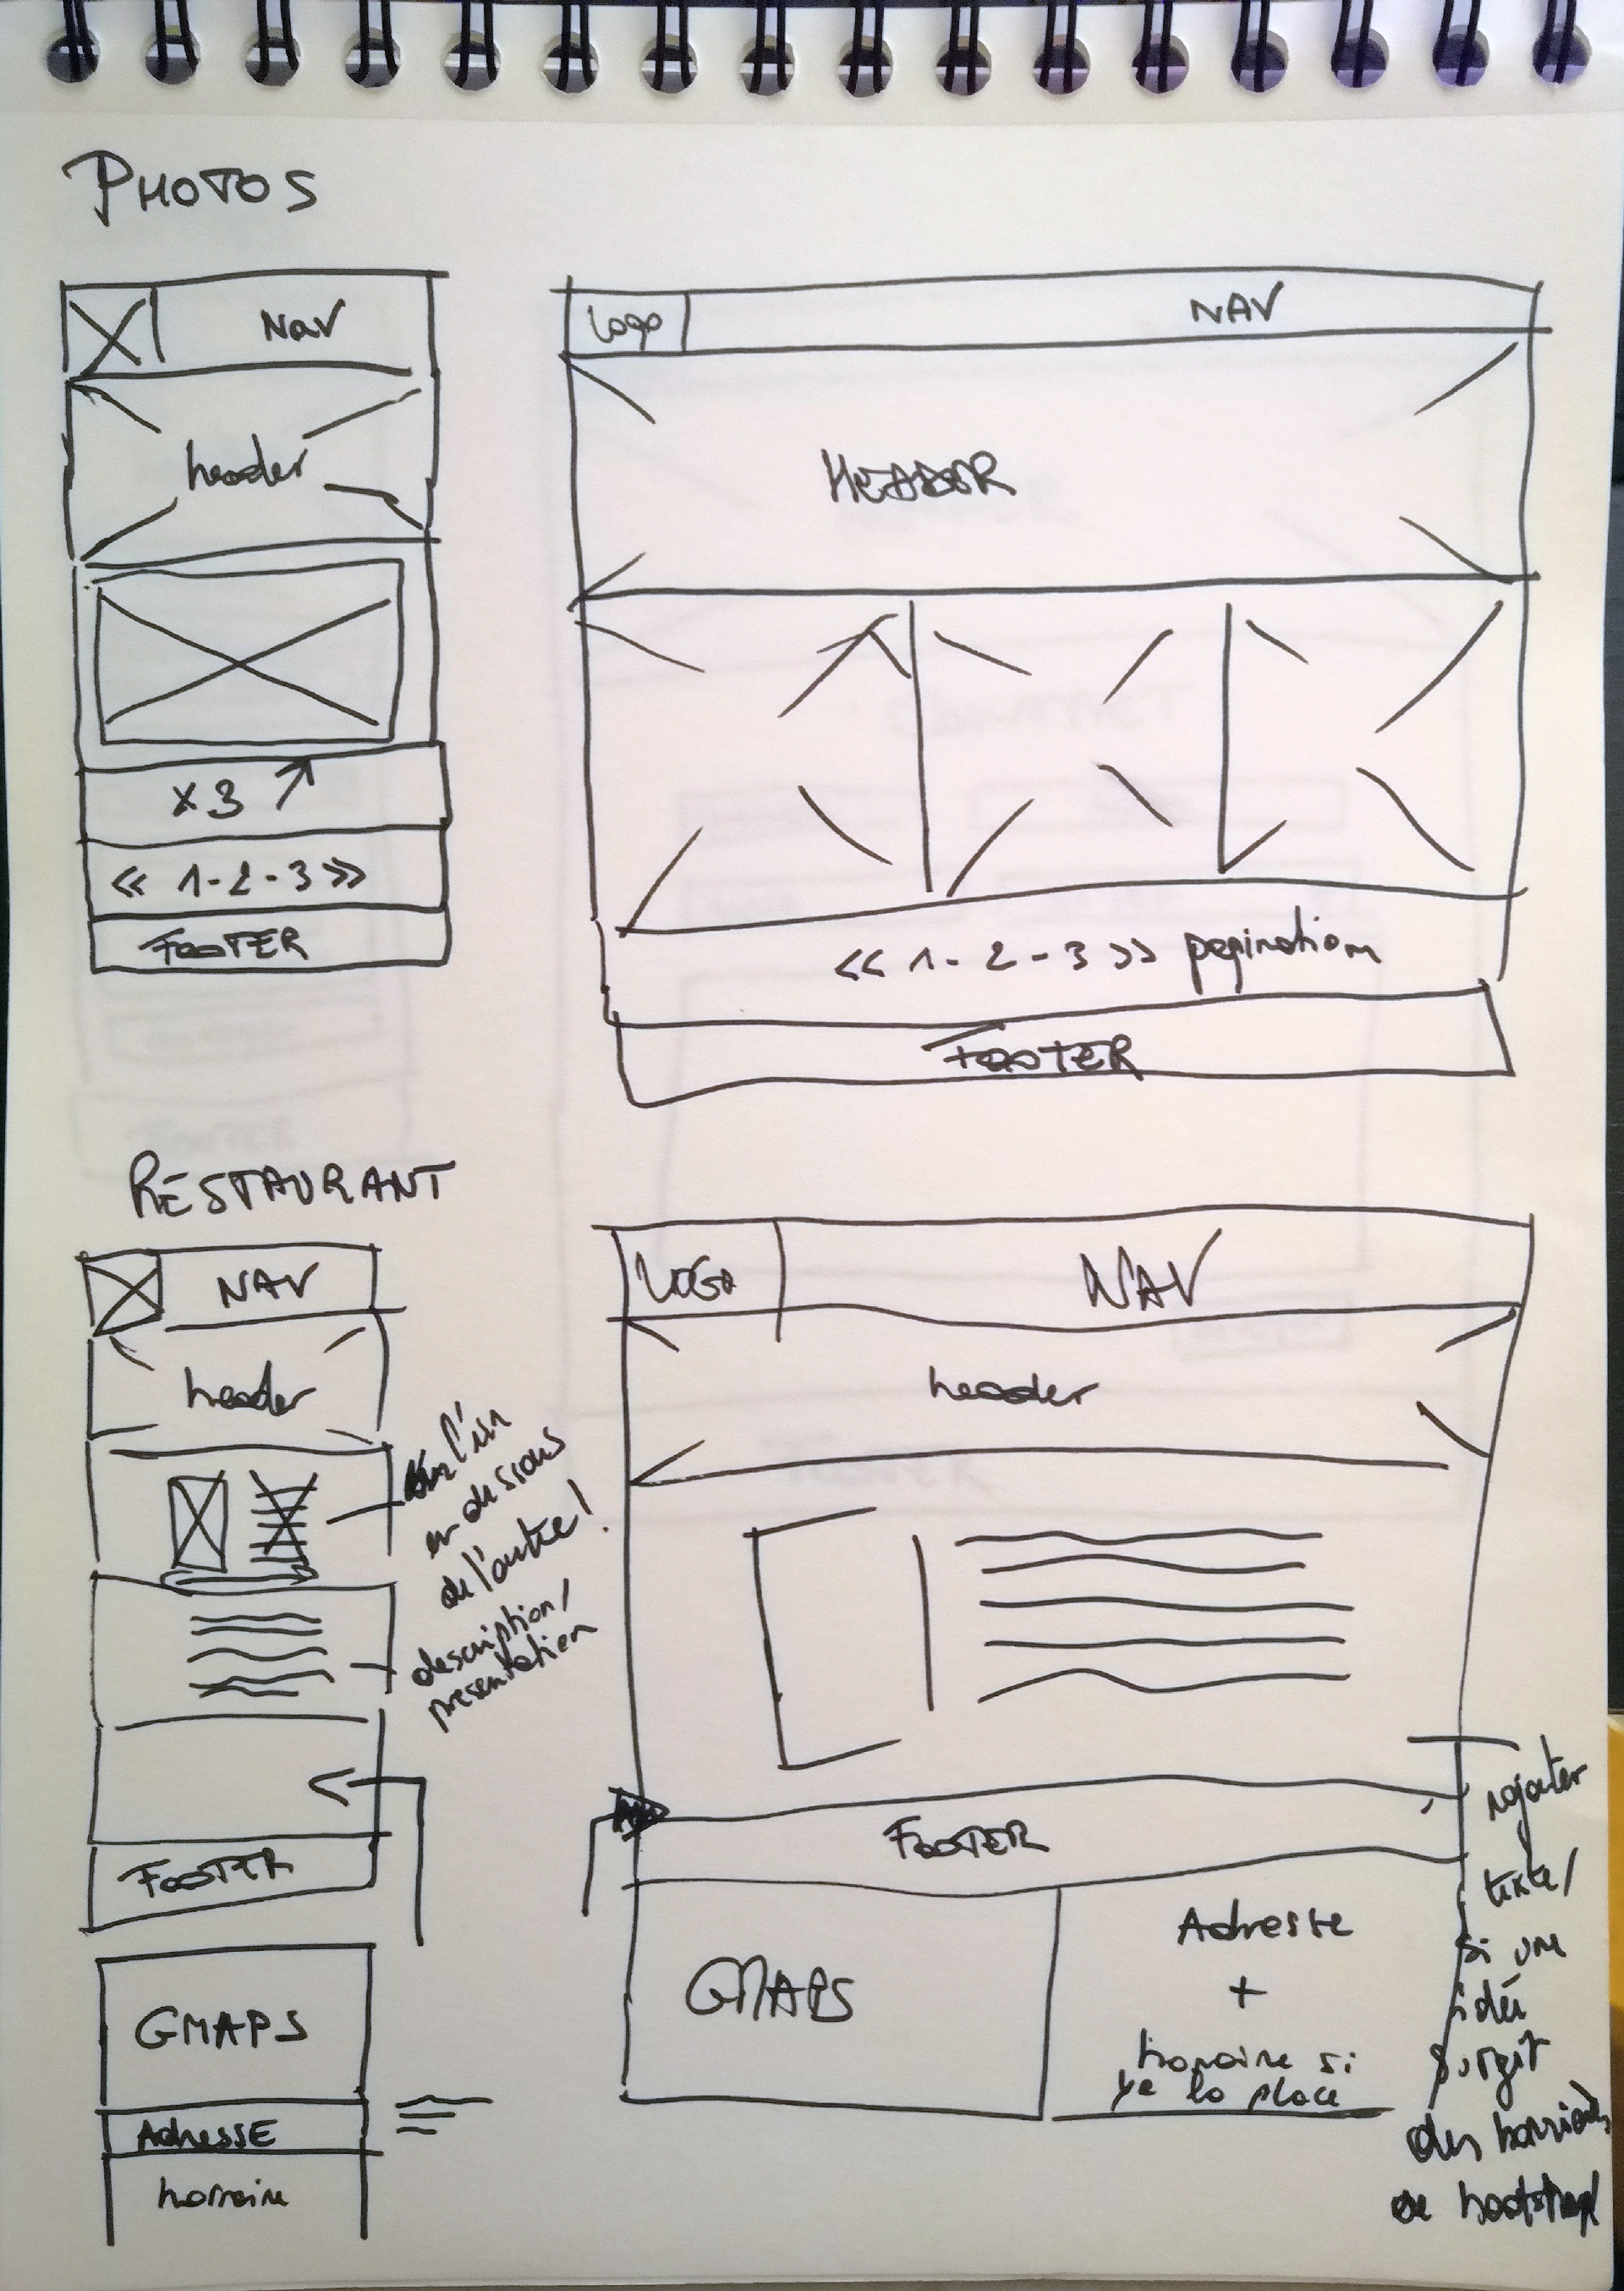 PHOTOS
Nav
header
x3
<< 1-2-3 >>
FOOTER
logo
NAV
HEADER
<< 1-2-3 >> pagination
FOOTER
RESTAURANT
NAV
header
l'un
en dessous
de l'autre!
description/
presentation
FOOTER
GMAPS
ADRESSE
horraire
LOGO
NAV
header
FOOTER
GMAPS
Adresse
+
horaire si
ya la place
rajouter
texte/
si une
idée
surgit
des
de bootstrap